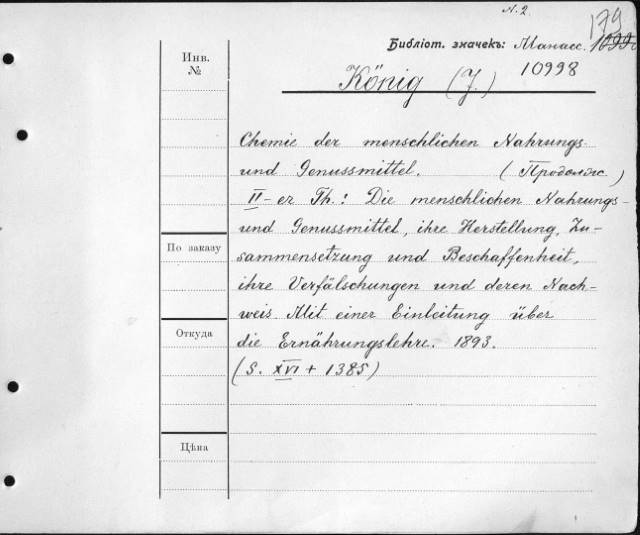 N. 2.
179
Библіот. значекъ: Манасс. 1099
Инв.
№
10998
König (J.)
Chemie der menschlichen Nahrungs-
und Genussmittel. (Продолж)
II-er Th.: Die menschlichen Nahrungs-
und Genussmittel, ihre Herstellung, Zu-
По заказу
sammensetzung und Beschaffenheit,
ihre Verfälschungen und deren Nach-
weis Mit einer Einleitung über
Откуда
die Ernährungslehre. 1893.
(S. XVI + 1385)
Цѣна